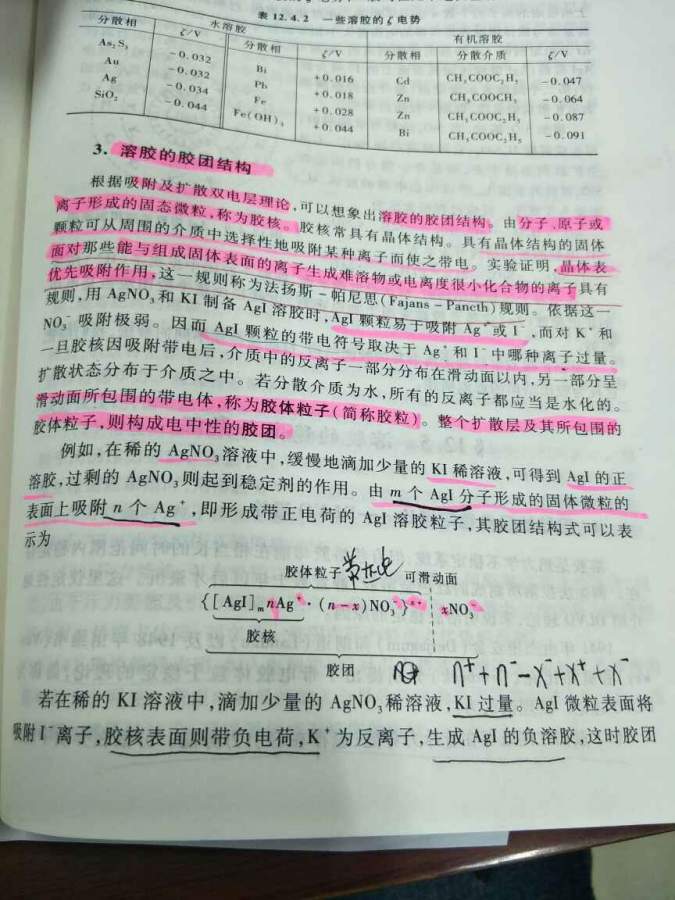 表 12.4.2 一些溶胶的 ζ 电势
分散相 水溶胶 有机溶胶
ζ/V 分散相 ζ/V 分散相 分散介质 ζ/V
As₂S₃ -0.032 Bi +0.016 Cd CH₃COOC₂H₅ -0.047
Au -0.032 Pb +0.018 Zn CH₃COOCH₃ -0.064
Ag -0.034 Fe +0.028 Zn CH₃COOC₂H₅ -0.087
SiO₂ -0.044 Fe(OH)₃ +0.044 Bi CH₃COOC₂H₅ -0.091
3. 溶胶的胶团结构
根据吸附及扩散双电层理论,可以想象出溶胶的胶团结构。由分子、原子或
离子形成的固态微粒,称为胶核。胶核常具有晶体结构。具有晶体结构的固体
颗粒可从周围的介质中选择性地吸附某种离子而使之带电。实验证明,晶体表
面对那些能与组成固体表面的离子生成难溶物或电离度很小化合物的离子具有
优先吸附作用,这一规则称为法扬斯-帕尼思(Fajans-Pancth)规则。依据这一
规则,用 AgNO₃和 KI 制备 AgI 溶胶时,AgI 颗粒易于吸附 Ag⁺或 I⁻,而对 K⁺和
NO₃⁻ 吸附极弱。因而 AgI 颗粒的带电符号取决于 Ag⁺和 I⁻中哪种离子过量。
一旦胶核因吸附带电后,介质中的反离子一部分分布在滑动面以内,另一部分呈
扩散状态分布于介质之中。若分散介质为水,所有的反离子都应当是水化的。
滑动面所包围的带电体,称为胶体粒子(简称胶粒)。整个扩散层及其所包围的
胶体粒子,则构成电中性的胶团。
例如,在稀的 AgNO₃溶液中,缓慢地滴加少量的 KI 稀溶液,可得到 AgI 的正
溶胶,过剩的 AgNO₃则起到稳定剂的作用。由 m 个 AgI 分子形成的固体微粒的
表面上吸附 n 个 Ag⁺,即形成带正电荷的 AgI 溶胶粒子,其胶团结构式可以表
示为
胶体粒子 带电 可滑动面
{[AgI]ₘnAg⁺·(n-x)NO₃⁻}ˣ⁺ xNO₃⁻
胶核
胶团 n⁺+n⁻-x⁻+x⁺+x⁻
若在稀的 KI 溶液中,滴加少量的 AgNO₃稀溶液,KI 过量。AgI 微粒表面将
吸附 I⁻离子,胶核表面则带负电荷,K⁺为反离子,生成 AgI 的负溶胶,这时胶团